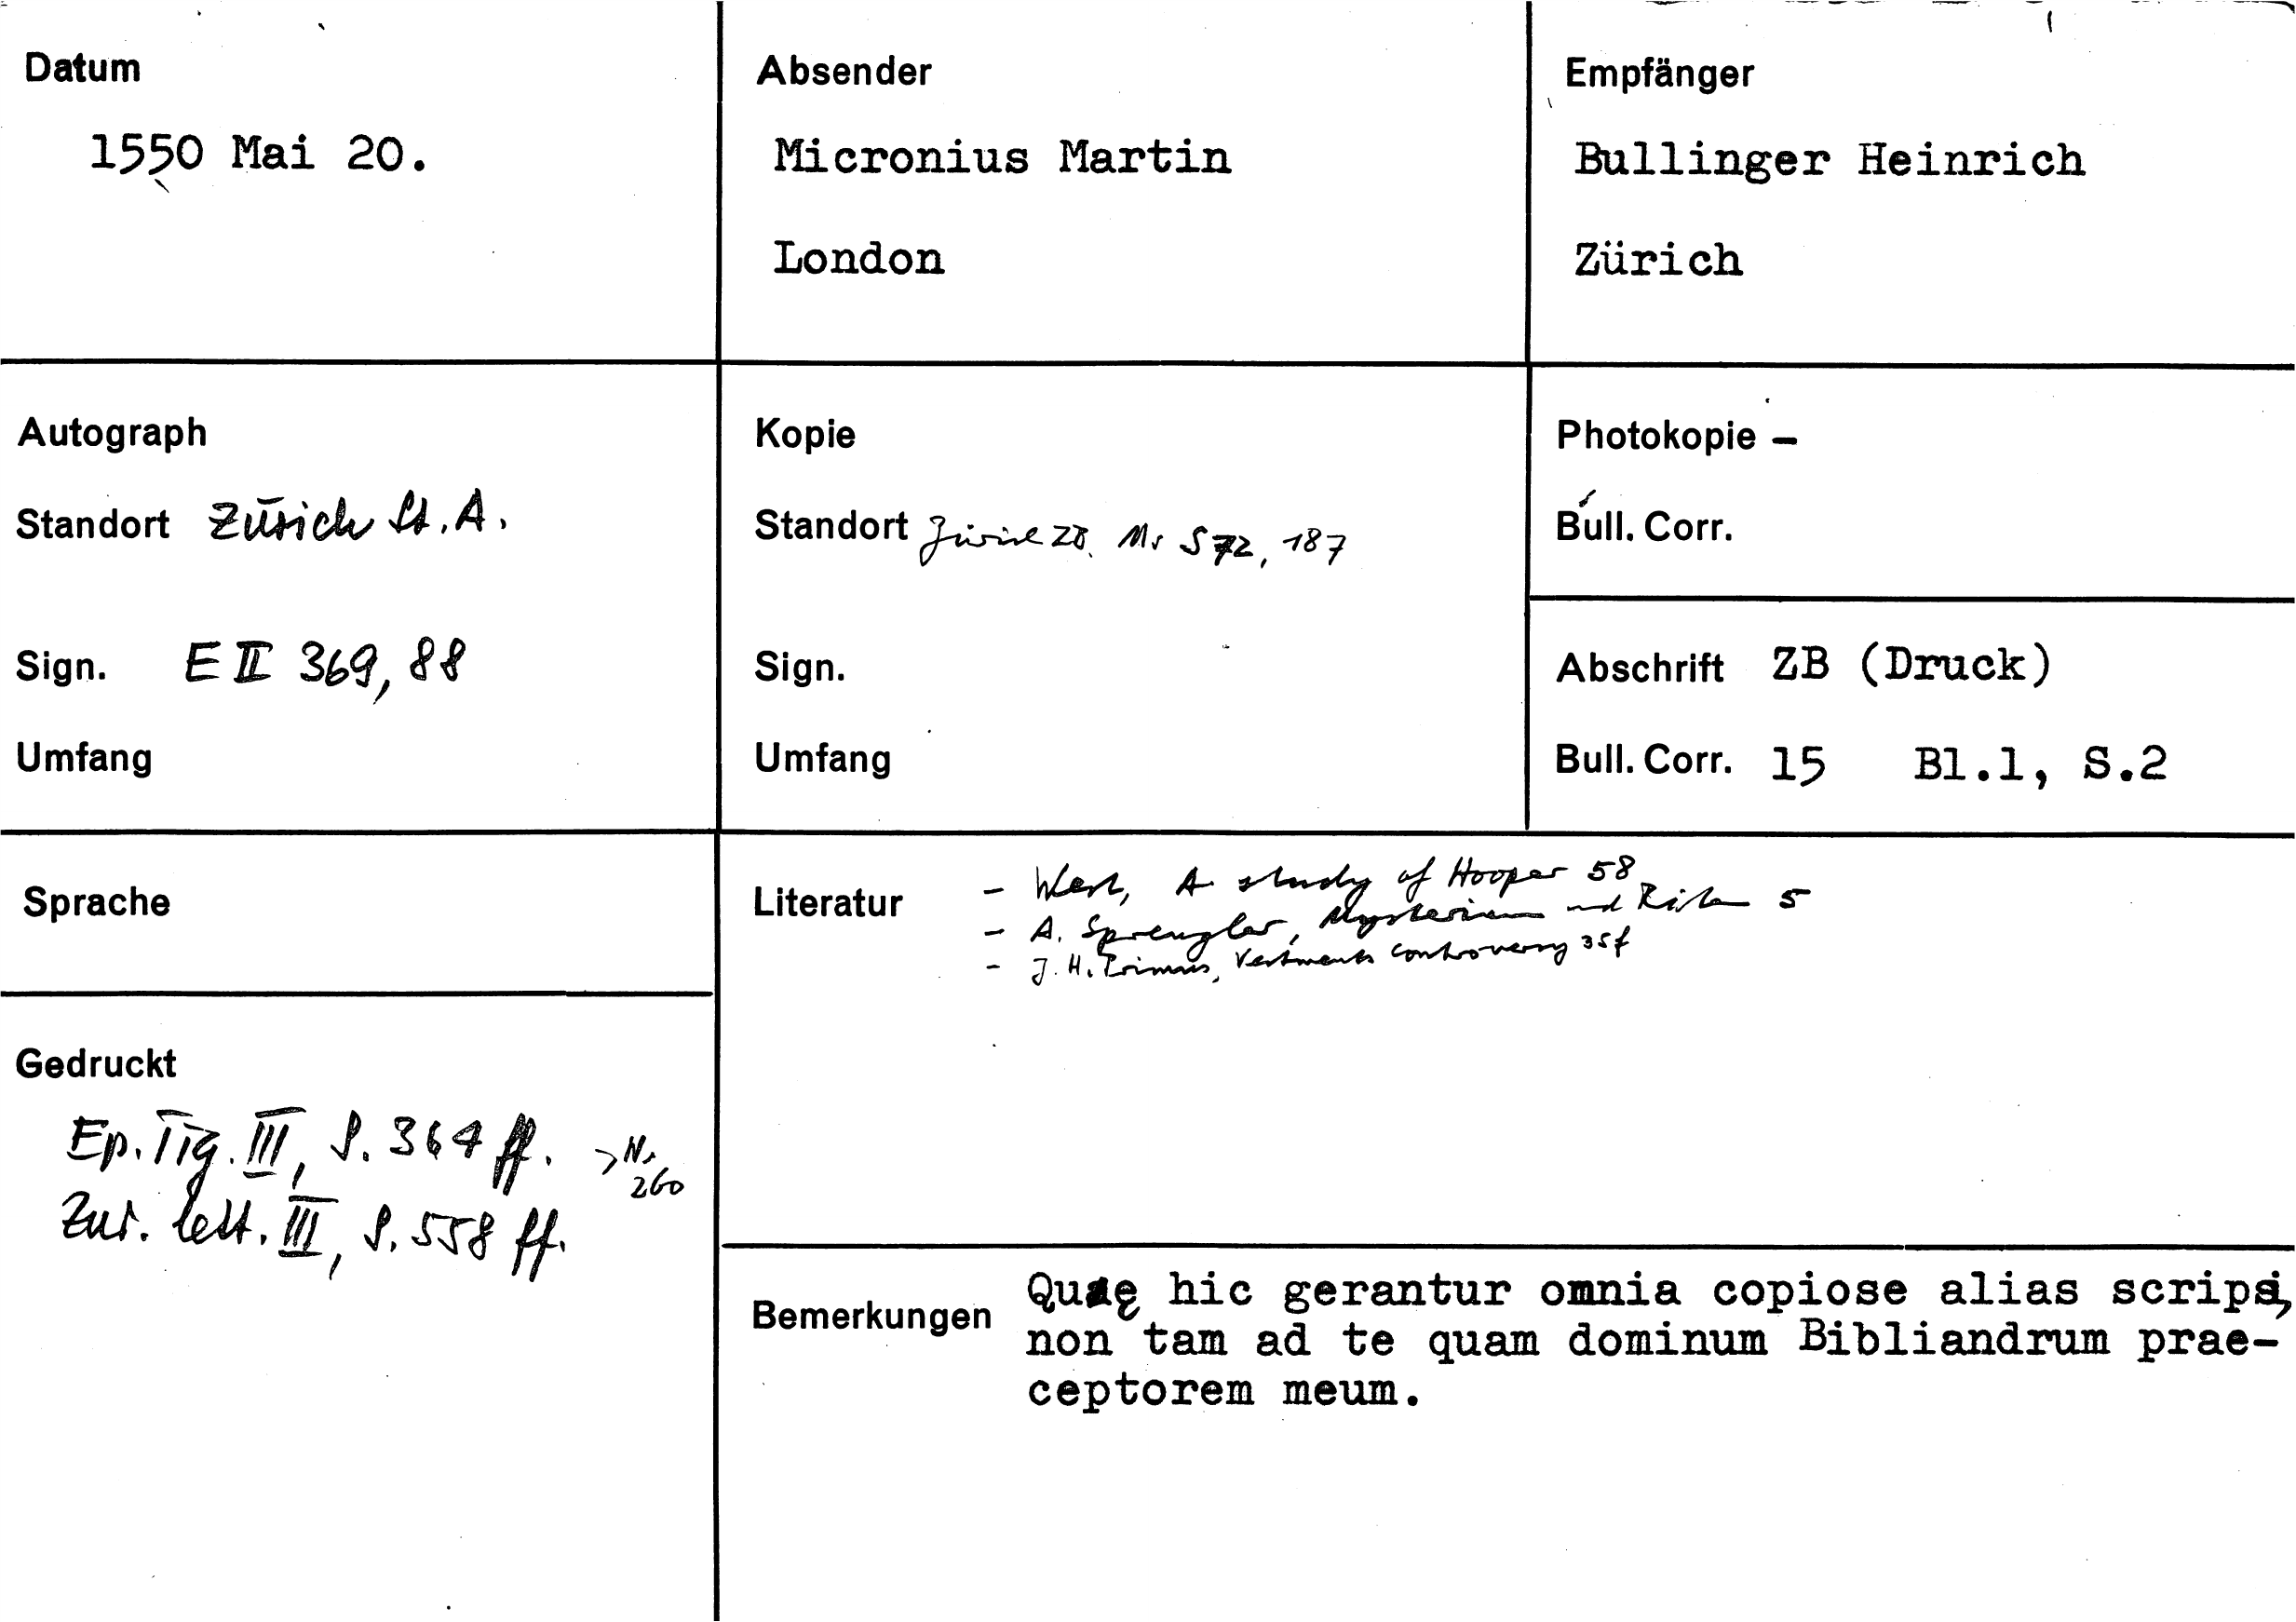 Datum
1550 Mai 20.
Absender
Micronius Martin
London
Empfänger
Bullinger Heinrich
Zürich
Autograph
Standort Zürich St. A.
Sign. E II 369, 88
Umfang
Kopie
Standort Zürich ZB. Ms S 72, 187
Sign.
Umfang
Photokopie –
Bull. Corr.
Abschrift ZB (Druck)
Bull. Corr. 15 Bl.1, S.2
Sprache
Gedruckt
Ep. Tig. III, S. 364 ff. > Nr. 260
Zur. lett. III, S. 558 ff.
Literatur
- West, A study of Hooper 58
- A. Sprengler, Mysterium und Riten 5
- J. H. Primus, Vestments controversy 35f
Bemerkungen
Quae hic gerantur omnia copiose alias scripsi,
non tam ad te quam dominum Bibliandrum prae-
ceptorem meum.